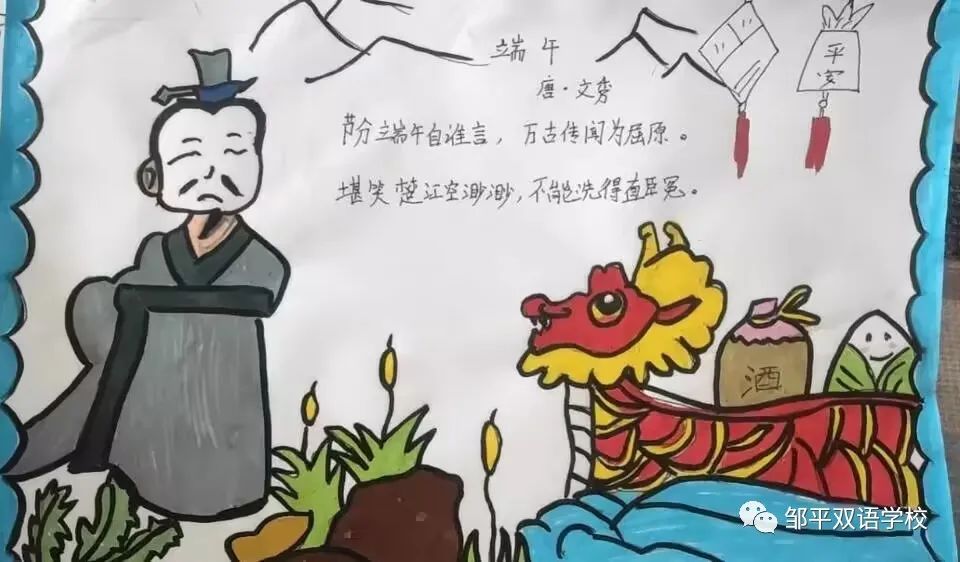 端午
唐·文秀
节分端午自谁言，万古传闻为屈原。
堪笑楚江空渺渺，不能洗得直臣冤。
平安
酒
邹平双语学校